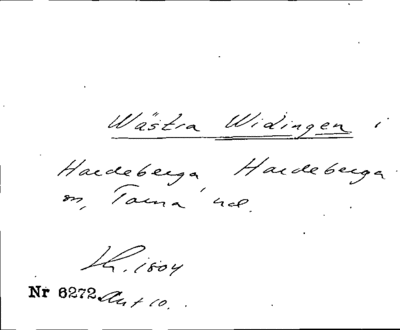 Wästra Widingen i
Hardeberga, Hardeberga
sn, Torna hd.
Lh. 1804
Nr 6272 Akt 10.